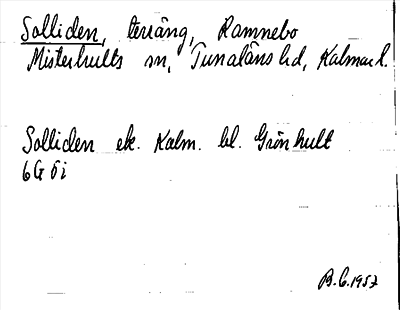 Solliden, terräng, Ramnebo
Misterhults sn, Tunaläns hd, Kalmar l.
Solliden ek. Kalm. bl. Grönhult
6G 5i
B.G. 1957